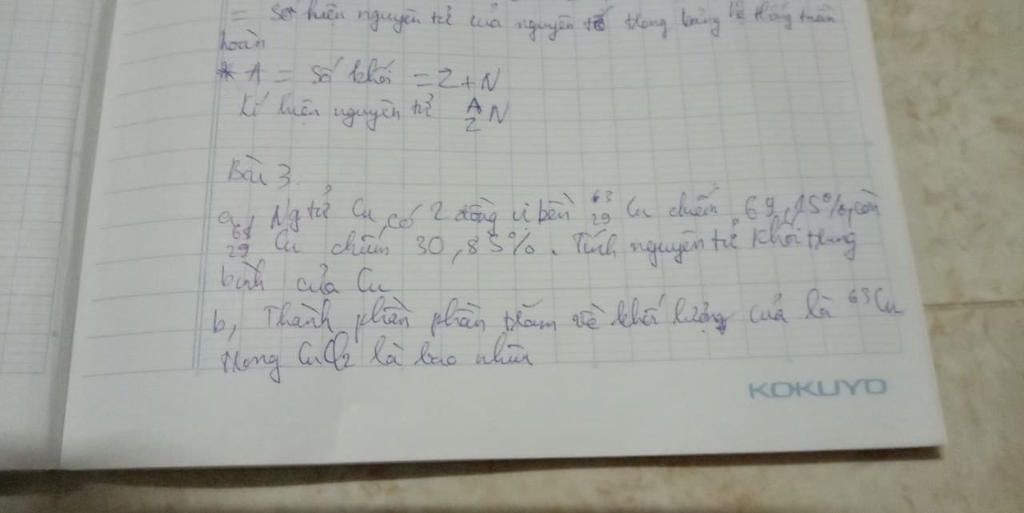 = số hiệu nguyên tử của nguyên tố trong bảng hệ thống tuần
hoàn
* A = số khối = Z + N
Kí hiệu nguyên tử A Z N
Bài 3.
a, Ng tử Cu có 2 đồng vị bền 63 29 Cu chiếm 69,15%, còn
65 29 Cu chiếm 30,85%. Tính nguyên tử khối trung
bình của Cu
b, Thành phần phần trăm về khối lượng của là 63Cu
trong CuCl2 là bao nhiêu
KOKUYO